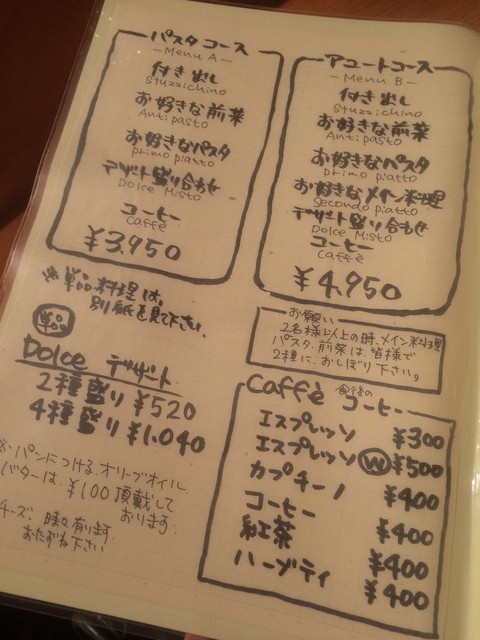 パスタコース
—Menu A—
付き出し
Stuzzichino
お好きな前菜
Antipasto
お好きなパスタ
primo piatto
デザート盛り合わせ
Dolce Misto
コーヒー
Caffè
¥3,950
アユートコース
—Menu B—
付き出し
Stuzzichino
お好きな前菜
Antipasto
お好きなパスタ
primo piatto
お好きなメイン料理
Secondo piatto
デザート盛り合わせ
Dolce Misto
コーヒー
Caffè
¥4,950
※単品料理は、
別紙を見て下さい。
お願い
2名様以上の時、メイン料理
パスタ・前菜は、皆様で
2種に、おしぼり下さい。
単品
Dolce デザート
2種盛り ¥520
4種盛り ¥1,040
※パンにつける、オリーブオイル、
バターは、¥100頂戴して
おります。
チーズ 時々有ります
おたずね下さい
Caffè 食後の コーヒー
エスプレッソ ¥300
エスプレッソ W ¥500
カプチーノ ¥400
コーヒー ¥400
紅茶 ¥400
ハーブティ ¥400